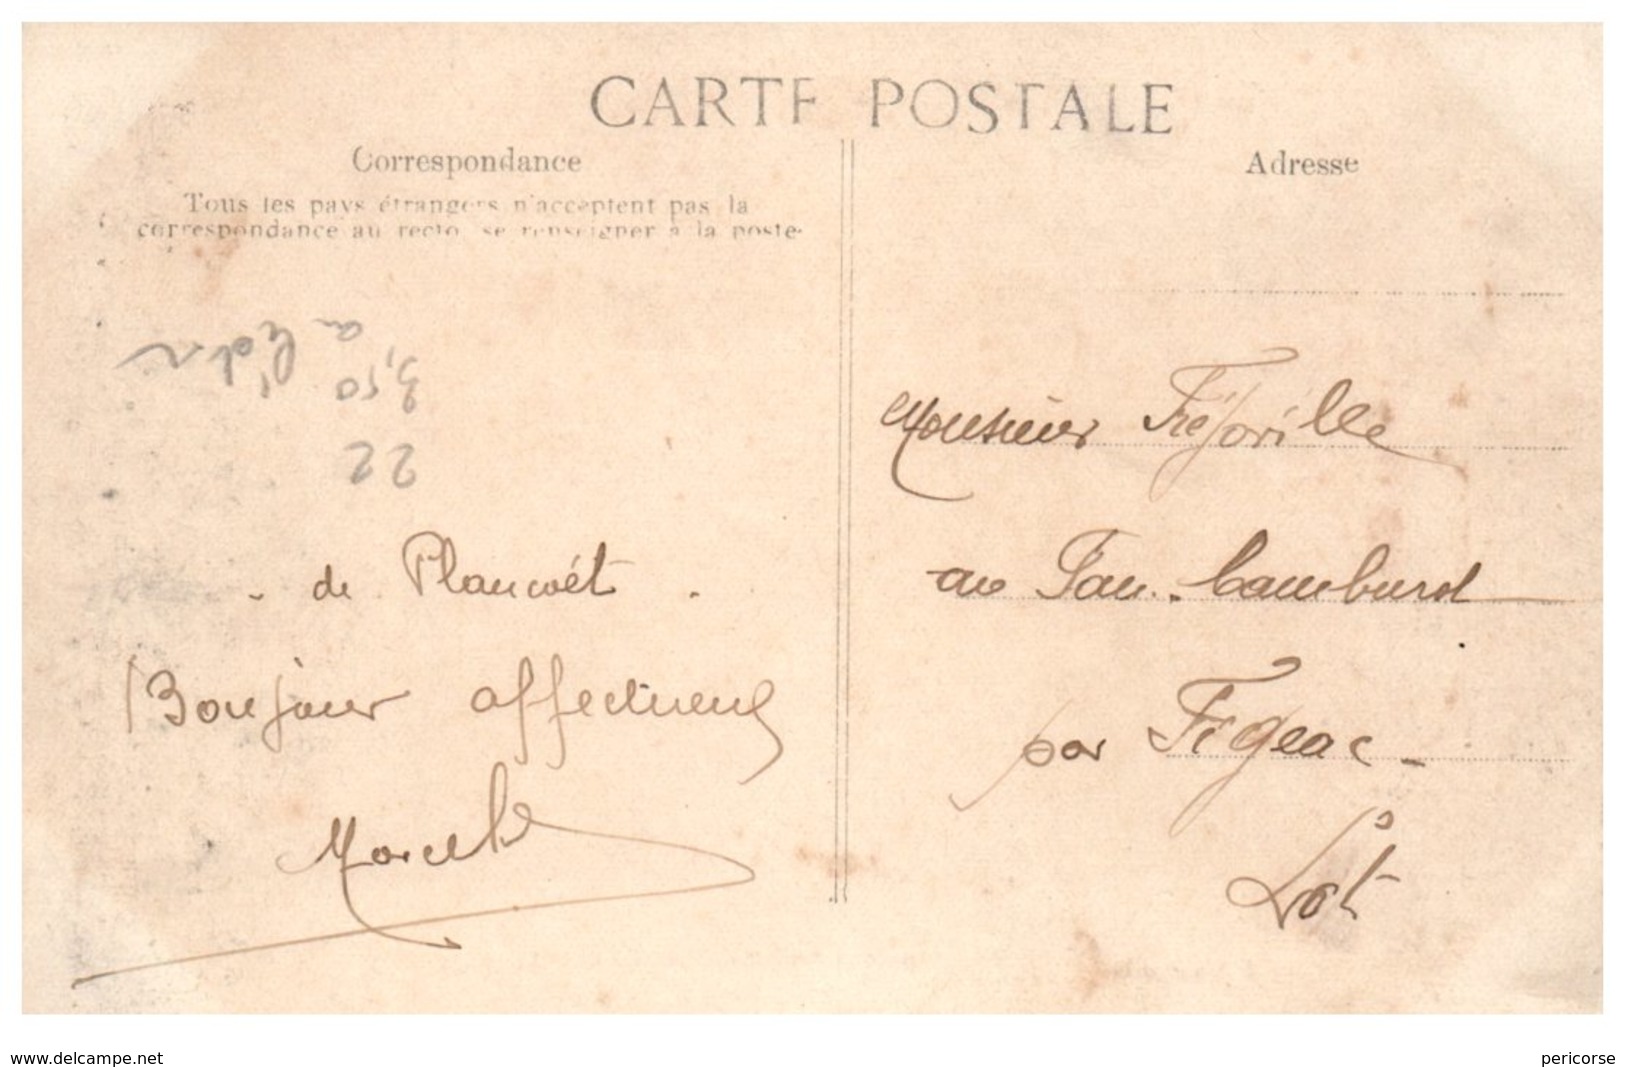 CARTE POSTALE
Correspondance
Tous les pays étrangers n'acceptent pas la
correspondance au recto, se renseigner à la poste.
Adresse
3,50
22
- de Plancoët.
Bonjour affectueux
Marcel
Monsieur Fréjoville
au Pan. Camburd
par Figeac -
Lot
www.delcampe.net
pericorse